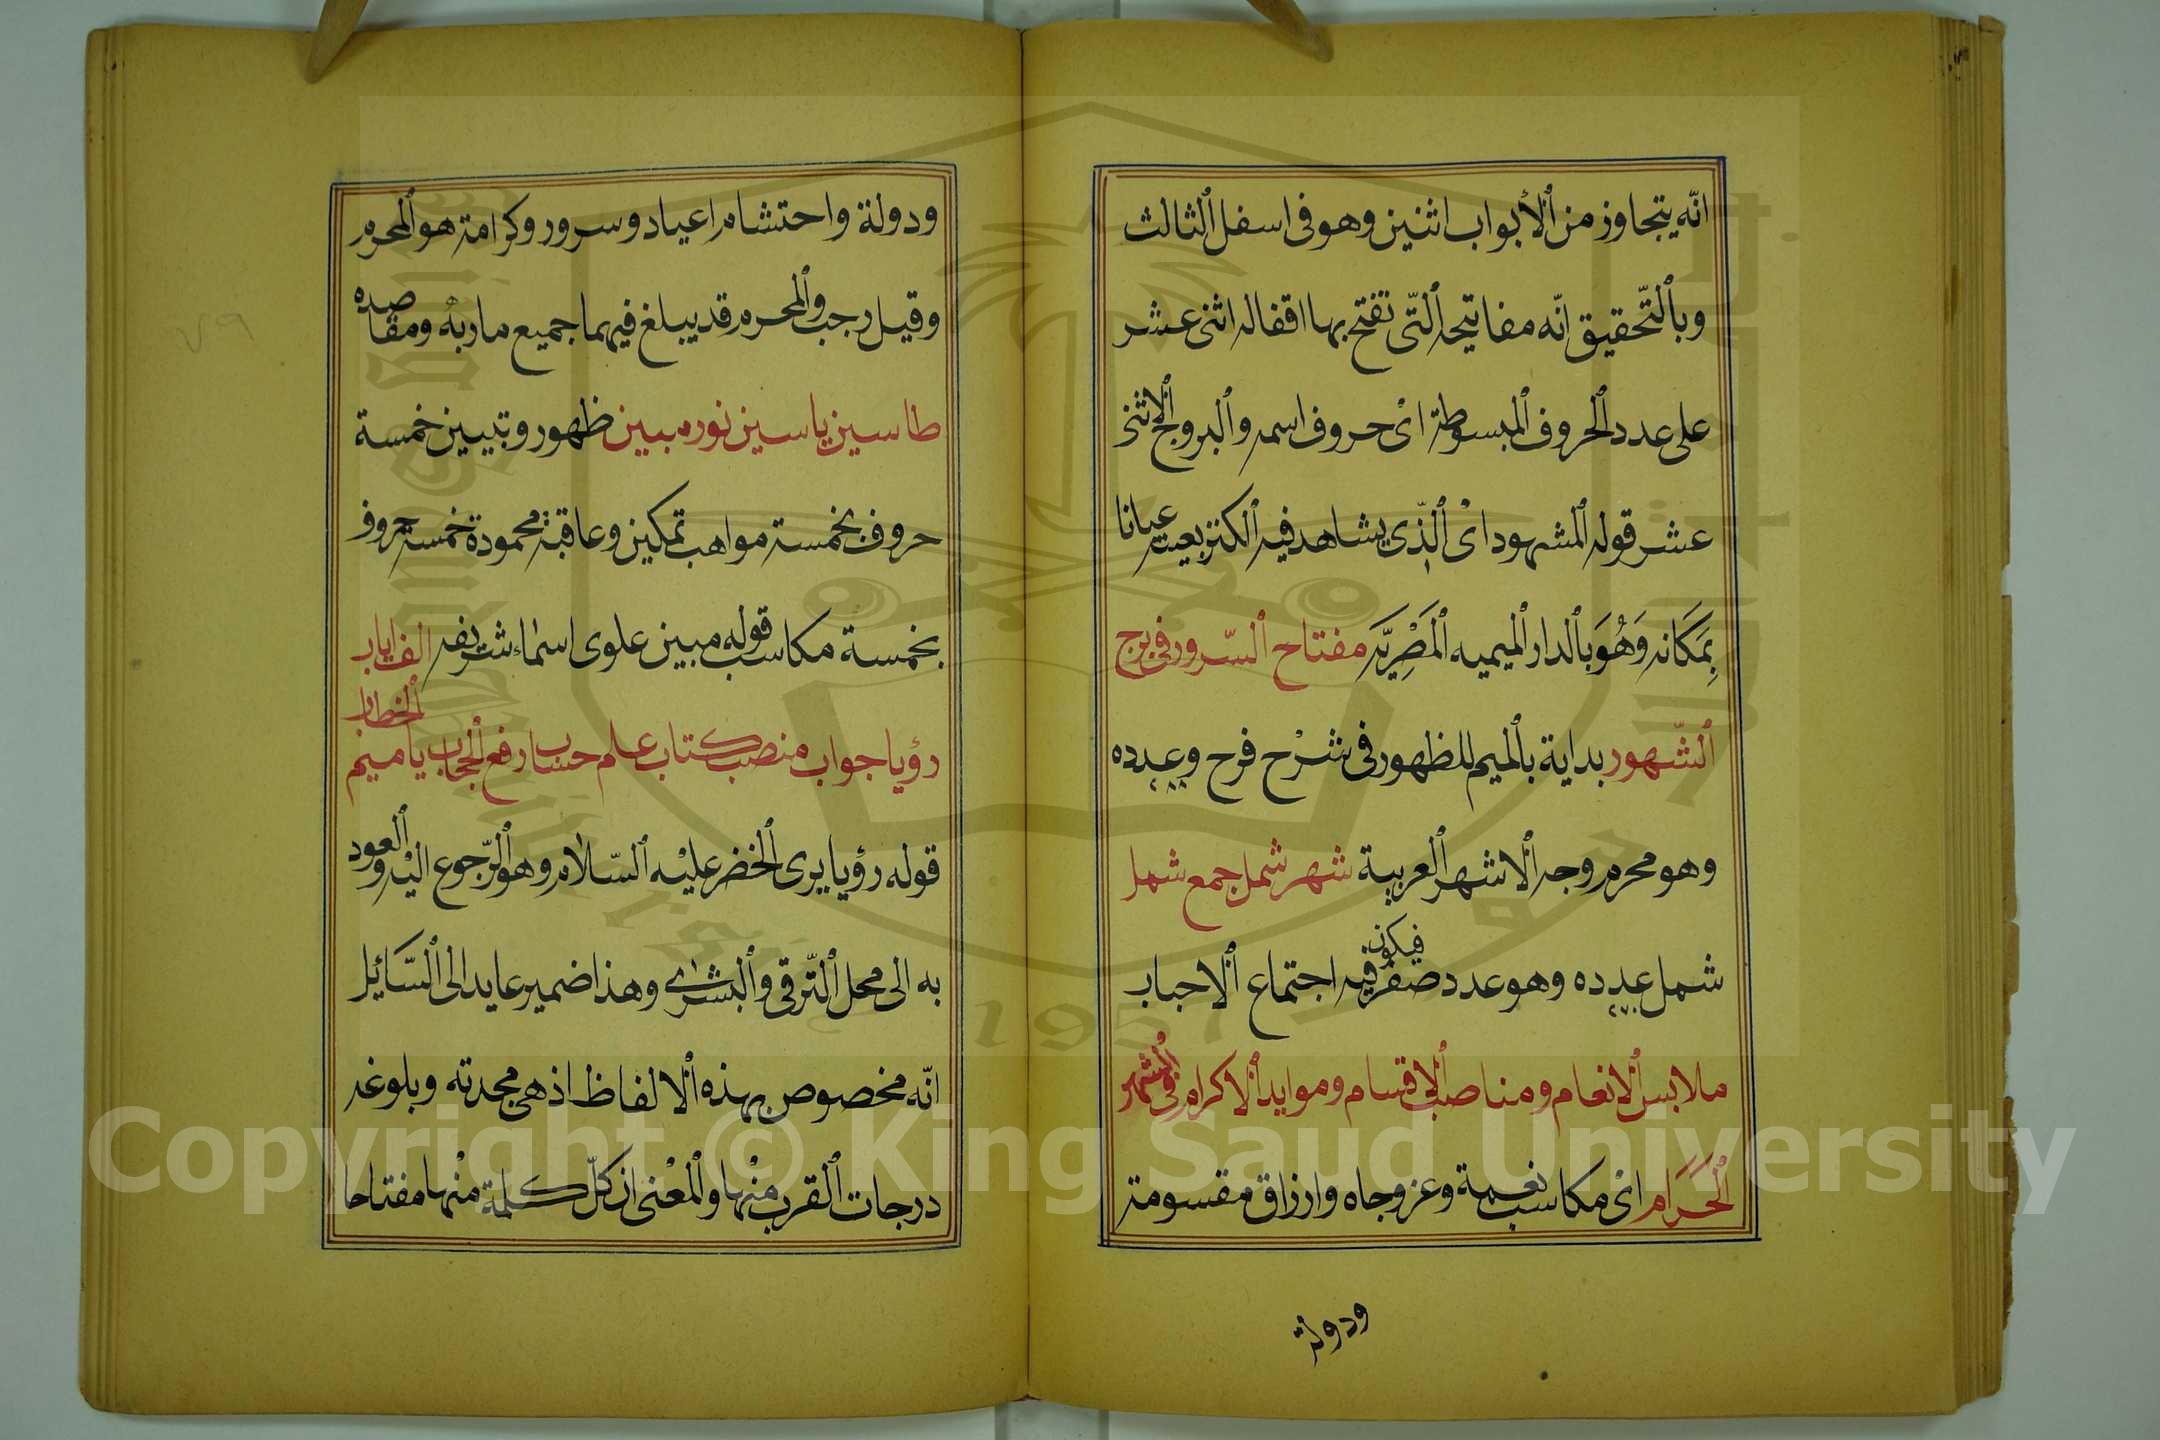 انّه يتجاوز من ٱلأبواب اثنين وهو فى اسفل ٱلثالث
وبٱلتّحقيق انّه مفاتيحه ٱلتّى تفتح بها اقفاله اثنى عشر
على عدد ٱلحروف ٱلمبسوطة اىْ حروف اسمه وٱلبروج ٱلاثنى
عشر قوله ٱلمشهود اىْ ٱلّذى يشاهد فيه ٱلكنز بعينه عيانا
بِمَكَانه وَهُوَ بٱلدار ٱلميميه ٱلمَصْرِيَّه مفتاح ٱلسّرور فى برج
ٱلشّهور بداية بٱلميم للظهور فى شرْح فرح وعدده ٢٨٨
وهو محرم وجه ٱلاشهر ٱلعربية شهر شمل جمع شمل
شمل عدده ٢٧٠ وهو عدد صفر فيكون فيه اجتماع ٱلاحباب
ملابس ٱلانعام ومناصب ٱلاقسام وموايد ٱلاكرام فى ٱلشهر
ٱلحَرَام اىْ مكاسب نعمة وعز وجاه وارزاق مقسومة
ودولة
ودولة واحتشام اعياد وسرور وكرامة هو ٱلمحرم
وقيل رجب وٱلمحرم قد يبلغ فيهما جميع ماربه ومقاصده
طاسين ياسين نوره مبين ظهور وتبيين خمسة
حروف بخمسة مواهب تمكين وعاقبة محمودة خمسة حروف
بخمسة مكاسب قوله مبين علوى اسماء شريفه الف اياب
رؤيا جواب منصب كتاب علم حساب رفع ٱلحجاب يا ميم ٱلخطاب
قوله رؤيا يرى ٱلخضر عليْه ٱلسّلام وهو ٱلرّجوع اليْه وٱلعود
به الى محل ٱلتّرقى وٱلبشرى وهذا ضمير عايد الى ٱلسّايل
انّه مخصوص بهذه ٱلالفاظ اذ هى مجدته وبلوغه
درجات ٱلقرب منْها وٱلمعْنى ان كلّ كلمة منْها مفتاحا
٧٩
Copyright © King Saud University
1957